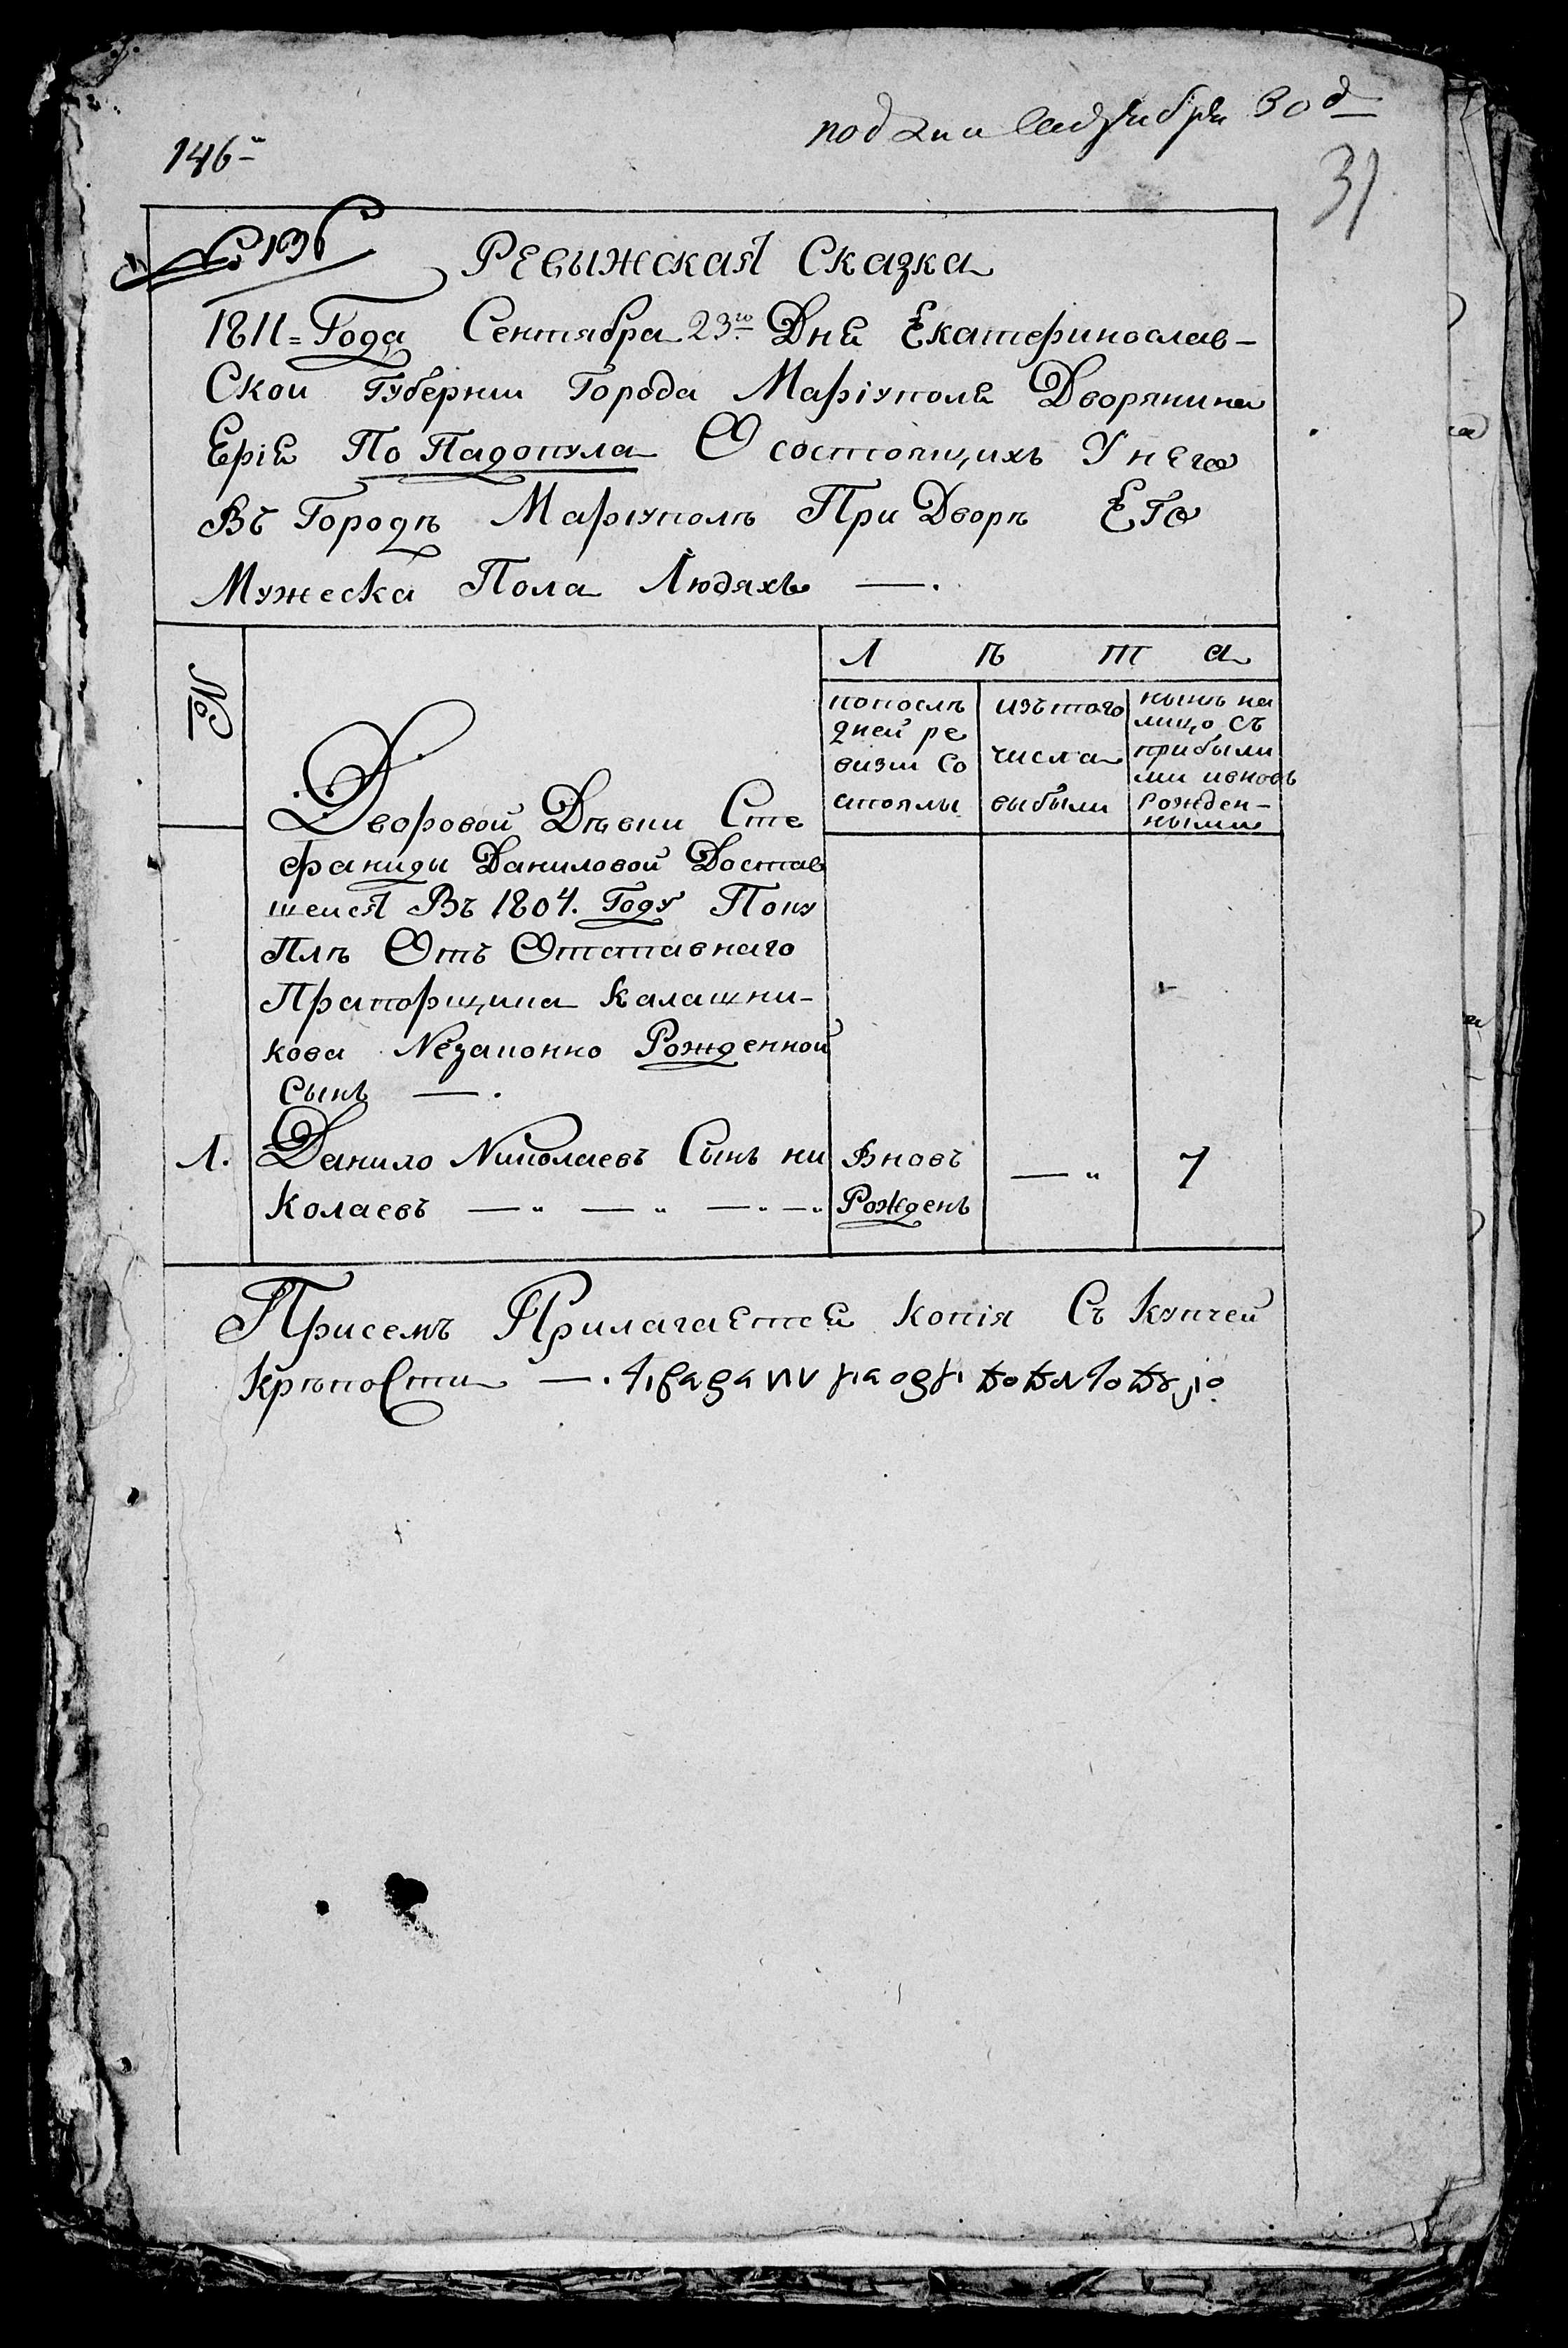 146
31
№ 136
Ревыжская Сказка
1811=Года Сентября 23го Дня Екатеринослав-
Скои Губернии Города Маріуполя Дворянина
Ерія По Падопула О состоящихъ У него
Въ Городѣ Маріуполѣ При Дворѣ Его
Мужеска Пола Людяхъ —.
Л ѣ т а
№
попослѣ
дней ре
визіи Со
стоялы
изътого
числа
выбыли
нынѣ на
лицо съ
прибылы
ми ивновь
рожден-
ными
Дворовой Дѣвки Сте
фаниды Даниловой Достав
шейся Въ 1804. Году Поку
Пкѣ Отъ Отставнаго
Прапорщика Калашни-
кова Незаконно Рожденной
Сынъ —.
1. Данило Николаевъ Сынъ ни Вновь — „ 7
колаевъ — „ — „ — „ — „ Рожденъ
Присемъ Прилагается копія Съ купчей
крѣпоСти —.